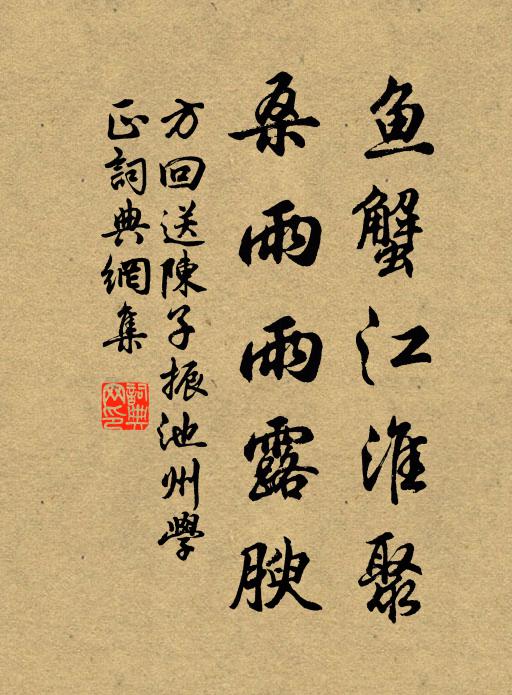 鱼蟹江淮聚
桑雨雨露腴
方回送陳子振池州學
正詞典網集
詞典网印